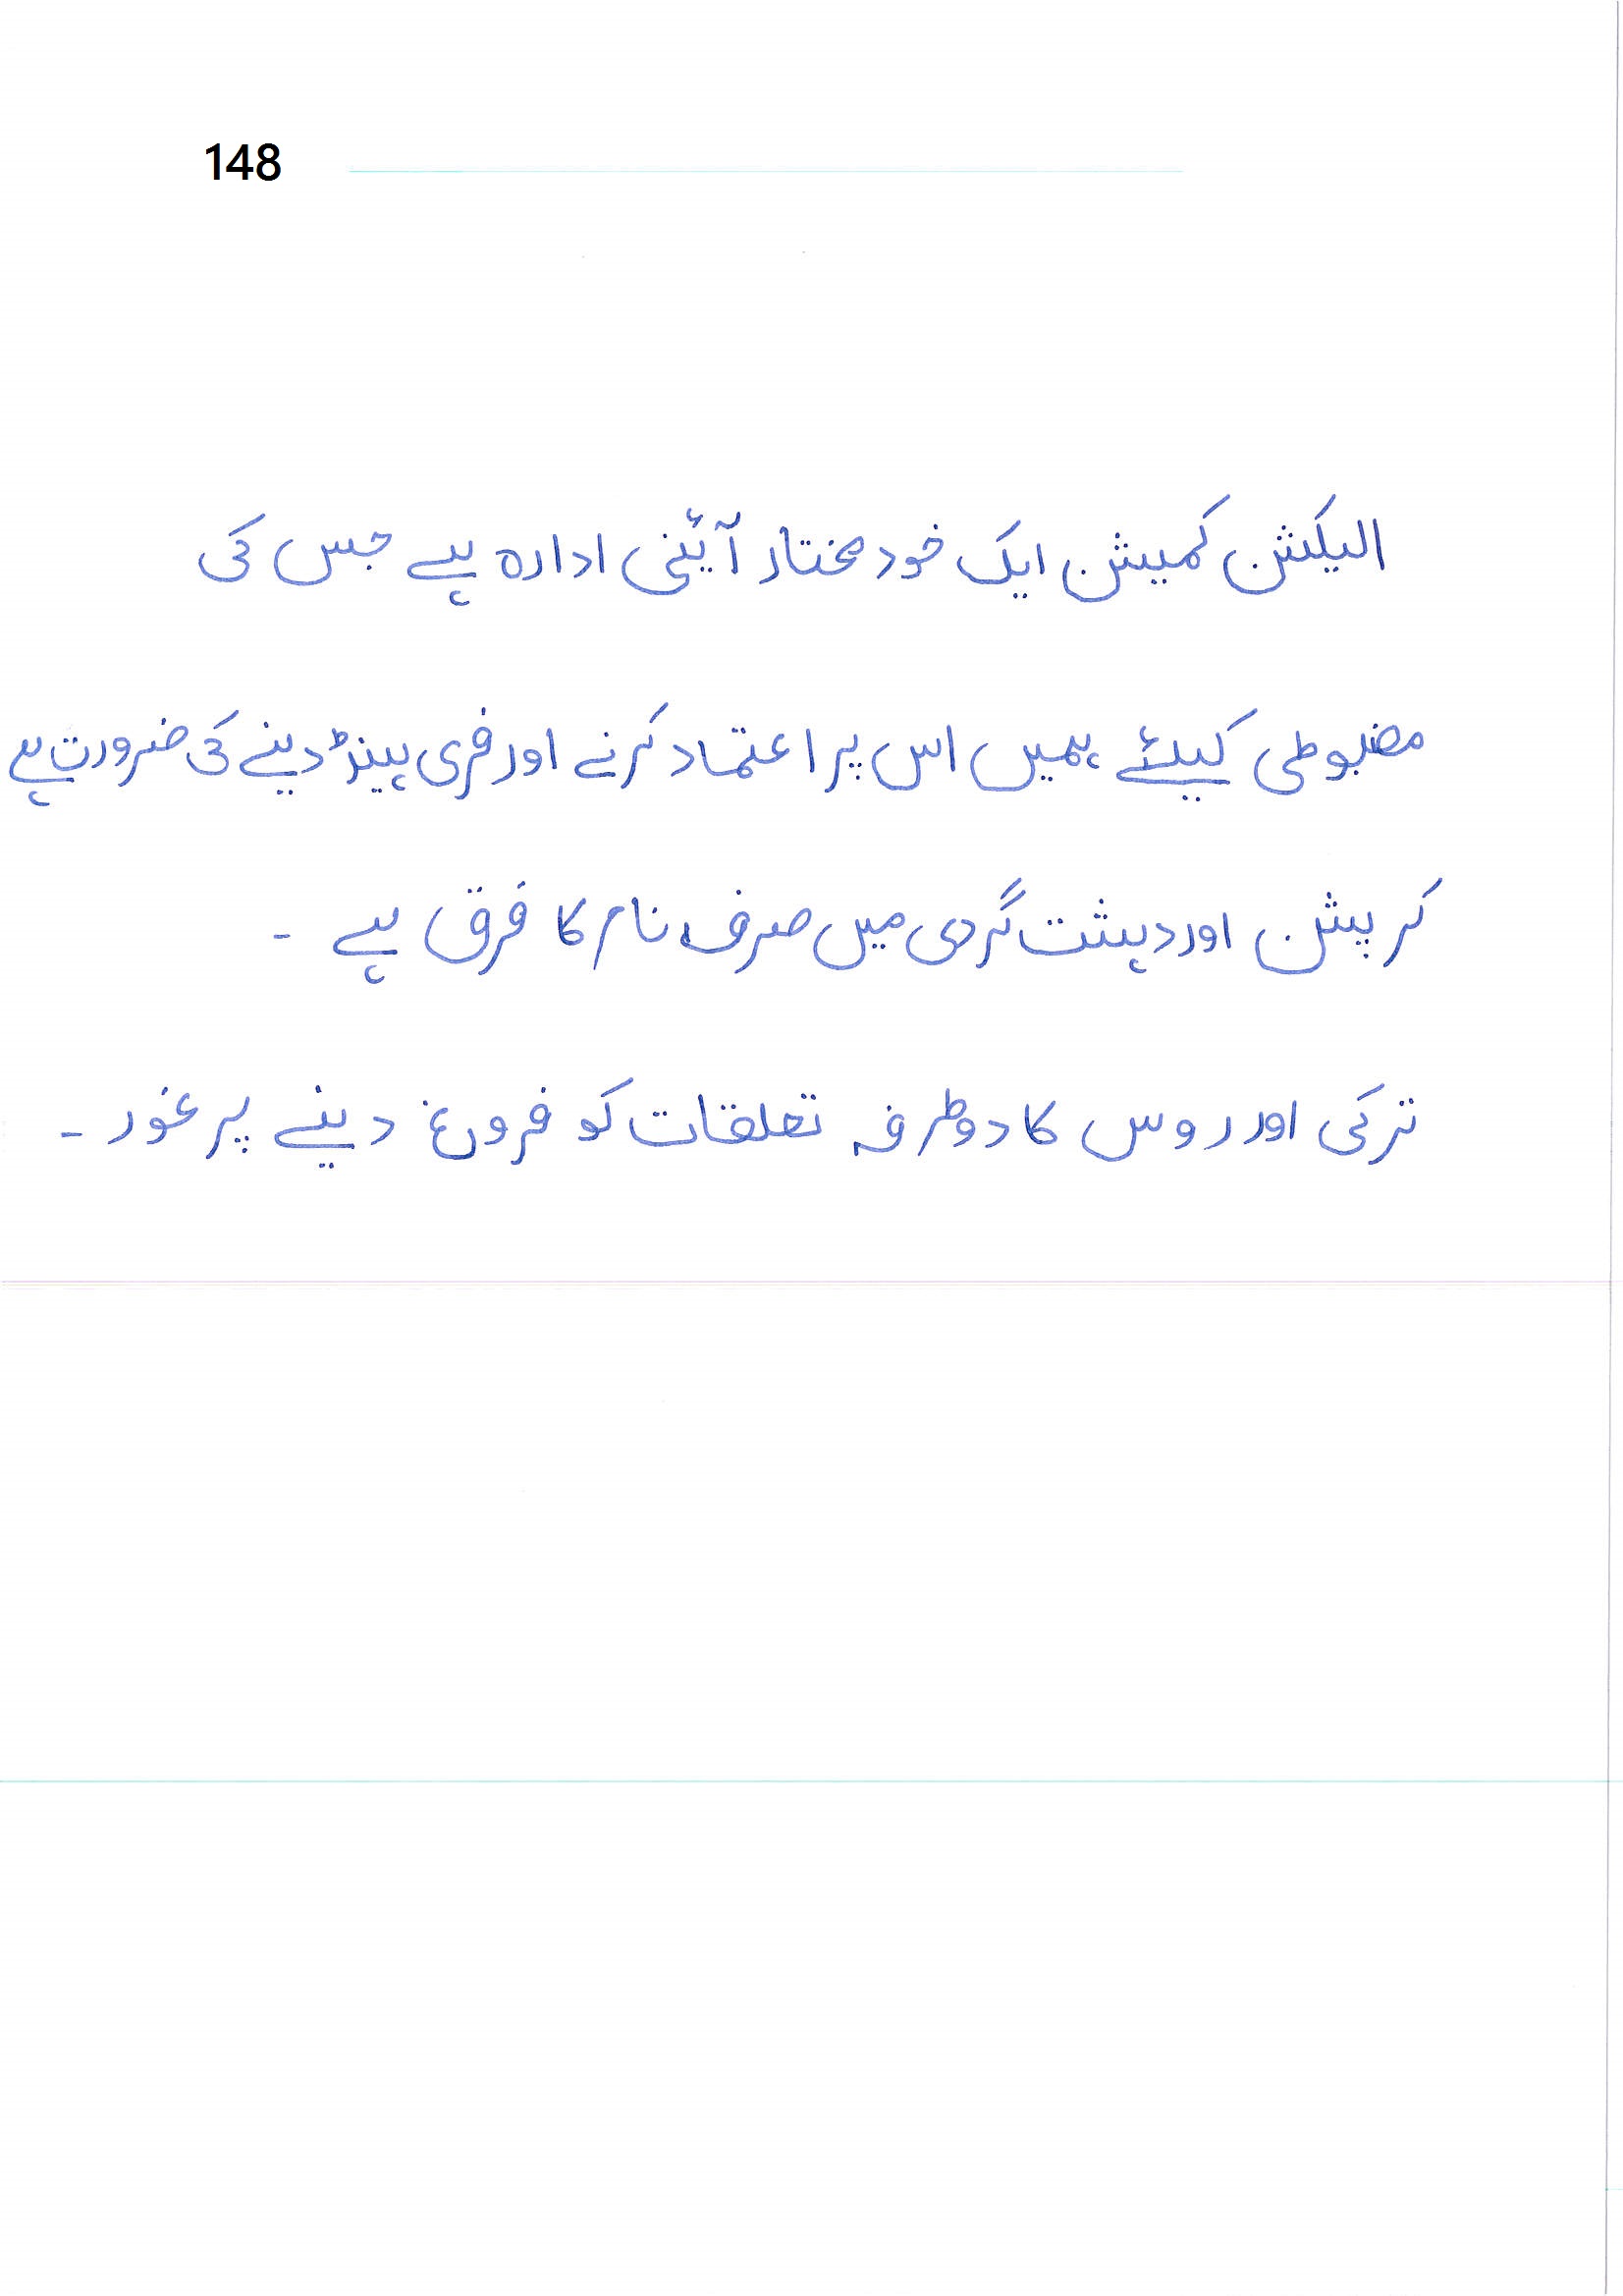 148
الیکشن کمیشن ایک خود مختار آئینی ادارہ ہے جس کی
مضبوطی کیلئے ہمیں اس پر اعتماد کرنے اور فری ہینڈ دینے کی ضرورت ہے
کرپشن اور دہشت گردی میں صرف نام کا فرق ہے ۔
ترکی اور روس کا دو طرفہ تعلقات کو فروغ دینے پر غور ۔